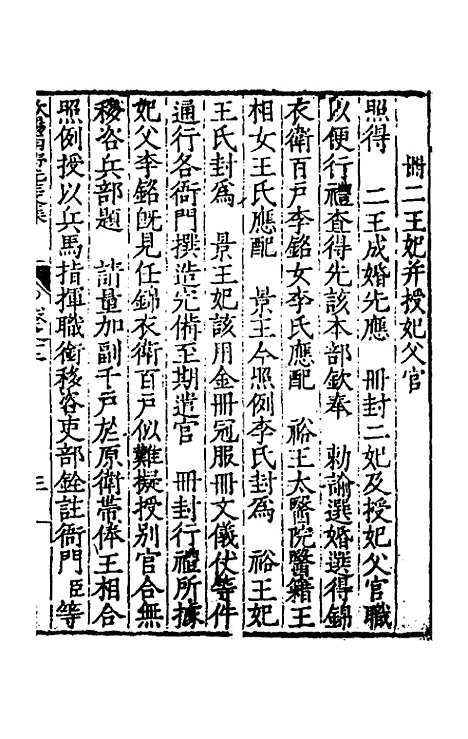 冊二王妃并授妃父官
照得　二王成婚先應　冊封二妃及授妃父官職
以便行禮查得先該本部欽奉　勑諭選婚選得錦
衣衛百戶李銘女李氏應配　裕王太醫院醫籍王
相女王氏應配　景王今照例李氏封爲　裕王妃
王氏封爲　景王妃該用金冊冠服冊文儀仗等件
通行各衙門撰造完備至期遣官　冊封行禮所據
妃父李銘旣見任錦衣衛百戶似難擬授別官合無
移咨兵部題　請量加副千戶於原衛帶俸王相合
照例授以兵馬指揮職銜移咨吏部銓註衙門臣等
三